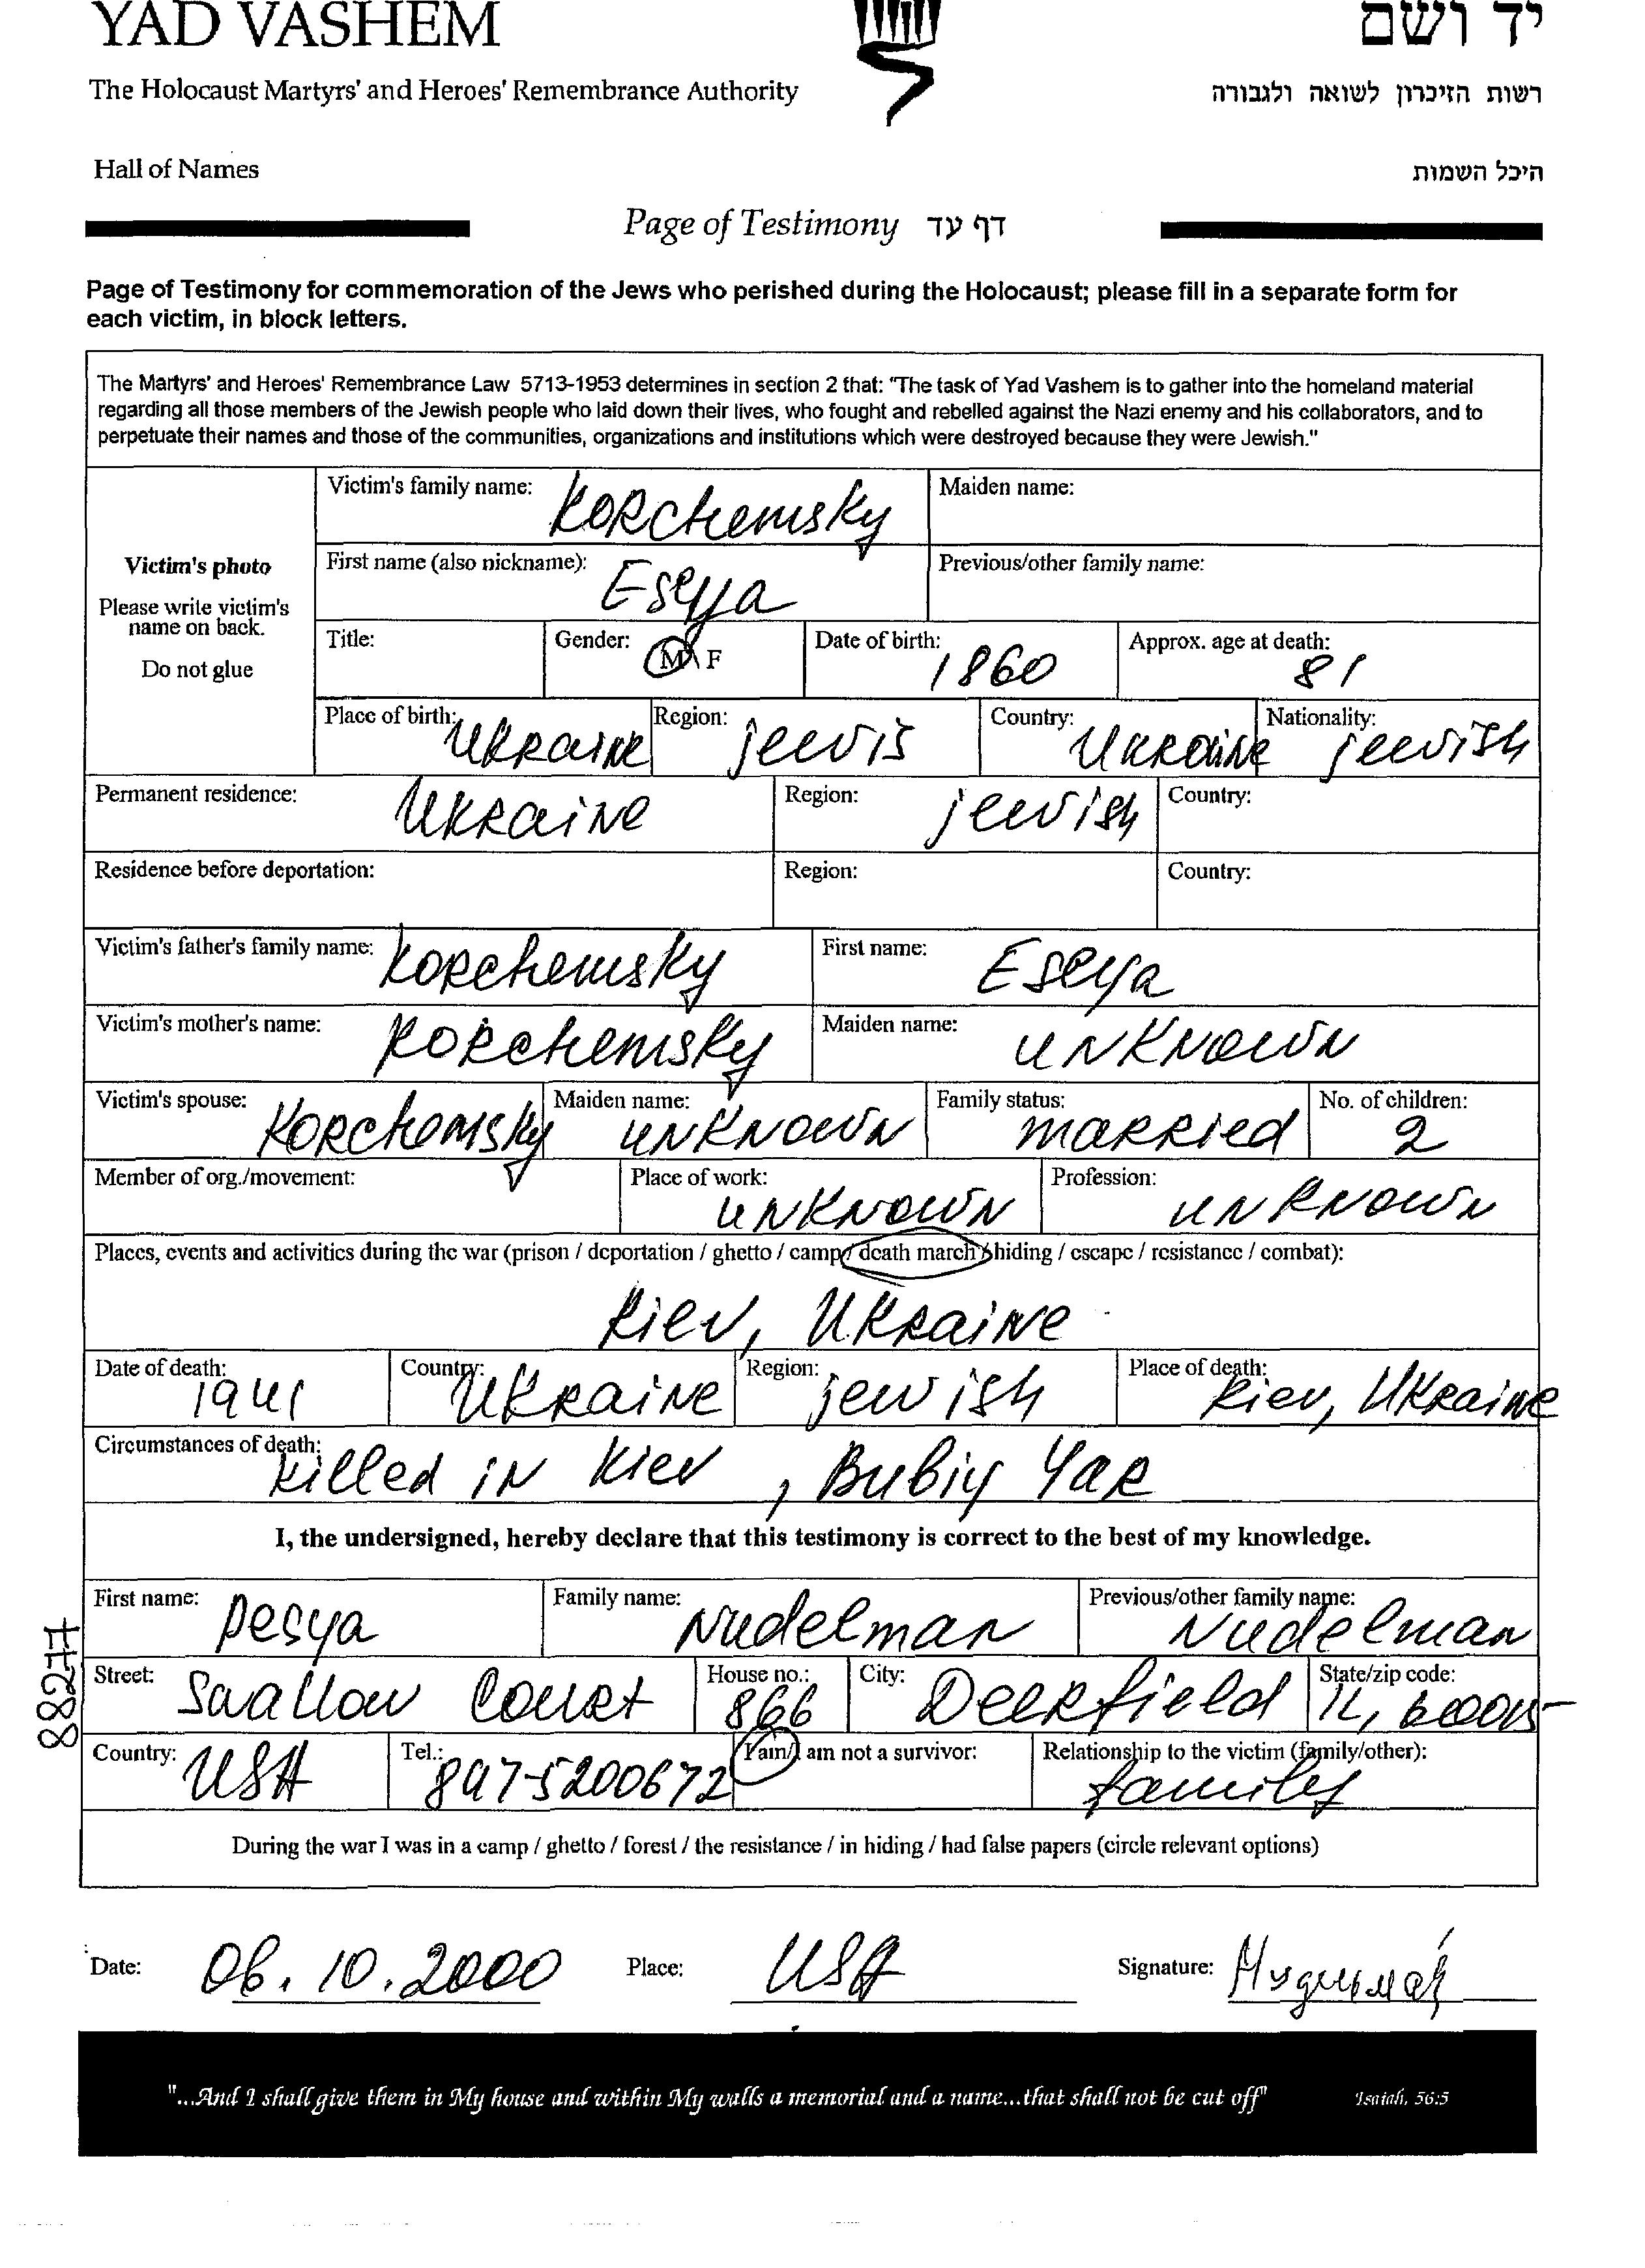 YAD VASHEM יד ושם
The Holocaust Martyrs' and Heroes' Remembrance Authority רשות הזיכרון לשואה ולגבורה
Hall of Names היכל השמות
Page of Testimony דף עד
Page of Testimony for commemoration of the Jews who perished during the Holocaust; please fill in a separate form for
each victim, in block letters.
The Martyrs' and Heroes' Remembrance Law 5713-1953 determines in section 2 that: "The task of Yad Vashem is to gather into the homeland material
regarding all those members of the Jewish people who laid down their lives, who fought and rebelled against the Nazi enemy and his collaborators, and to
perpetuate their names and those of the communities, organizations and institutions which were destroyed because they were Jewish."
Victim's photo
Please write victim's
name on back.
Do not glue
Victim's family name: Korchemsky Maiden name:
First name (also nickname): Eseya Previous/other family name:
Title: Gender: M \ F Date of birth: 1860 Approx. age at death: 81
Place of birth: Ukraine Region: jewis Country: Ukraine Nationality: jewish
Permanent residence: Ukraine Region: jewish Country:
Residence before deportation: Region: Country:
Victim's father's family name: Korchemsky First name: Eseya
Victim's mother's name: Korchemsky Maiden name: unknown
Victim's spouse: Korchemsky Maiden name: unknown Family status: married No. of children: 2
Member of org./movement: Place of work: unknown Profession: unknown
Places, events and activities during the war (prison / deportation / ghetto / camp / death march / hiding / escape / resistance / combat):
Kiev, Ukraine
Date of death: 1941 Country: Ukraine Region: jewish Place of death: Kiev, Ukraine
Circumstances of death: killed in Kiev, Bubiy Yar
I, the undersigned, hereby declare that this testimony is correct to the best of my knowledge.
First name: Pesya Family name: Nudelman Previous/other family name: Nudelman
Street: Swallow Court House no.: 866 City: Deerfield State/zip code: IL, 60015
Country: USA Tel.: 8475200672 I am/I am not a survivor: Relationship to the victim (family/other): family
During the war I was in a camp / ghetto / forest / the resistance / in hiding / had false papers (circle relevant options)
88277
Date: 06.10.2000 Place: USA Signature:
"...And I shall give them in My house and within My walls a memorial and a name...that shall not be cut off" Isaiah, 56:5